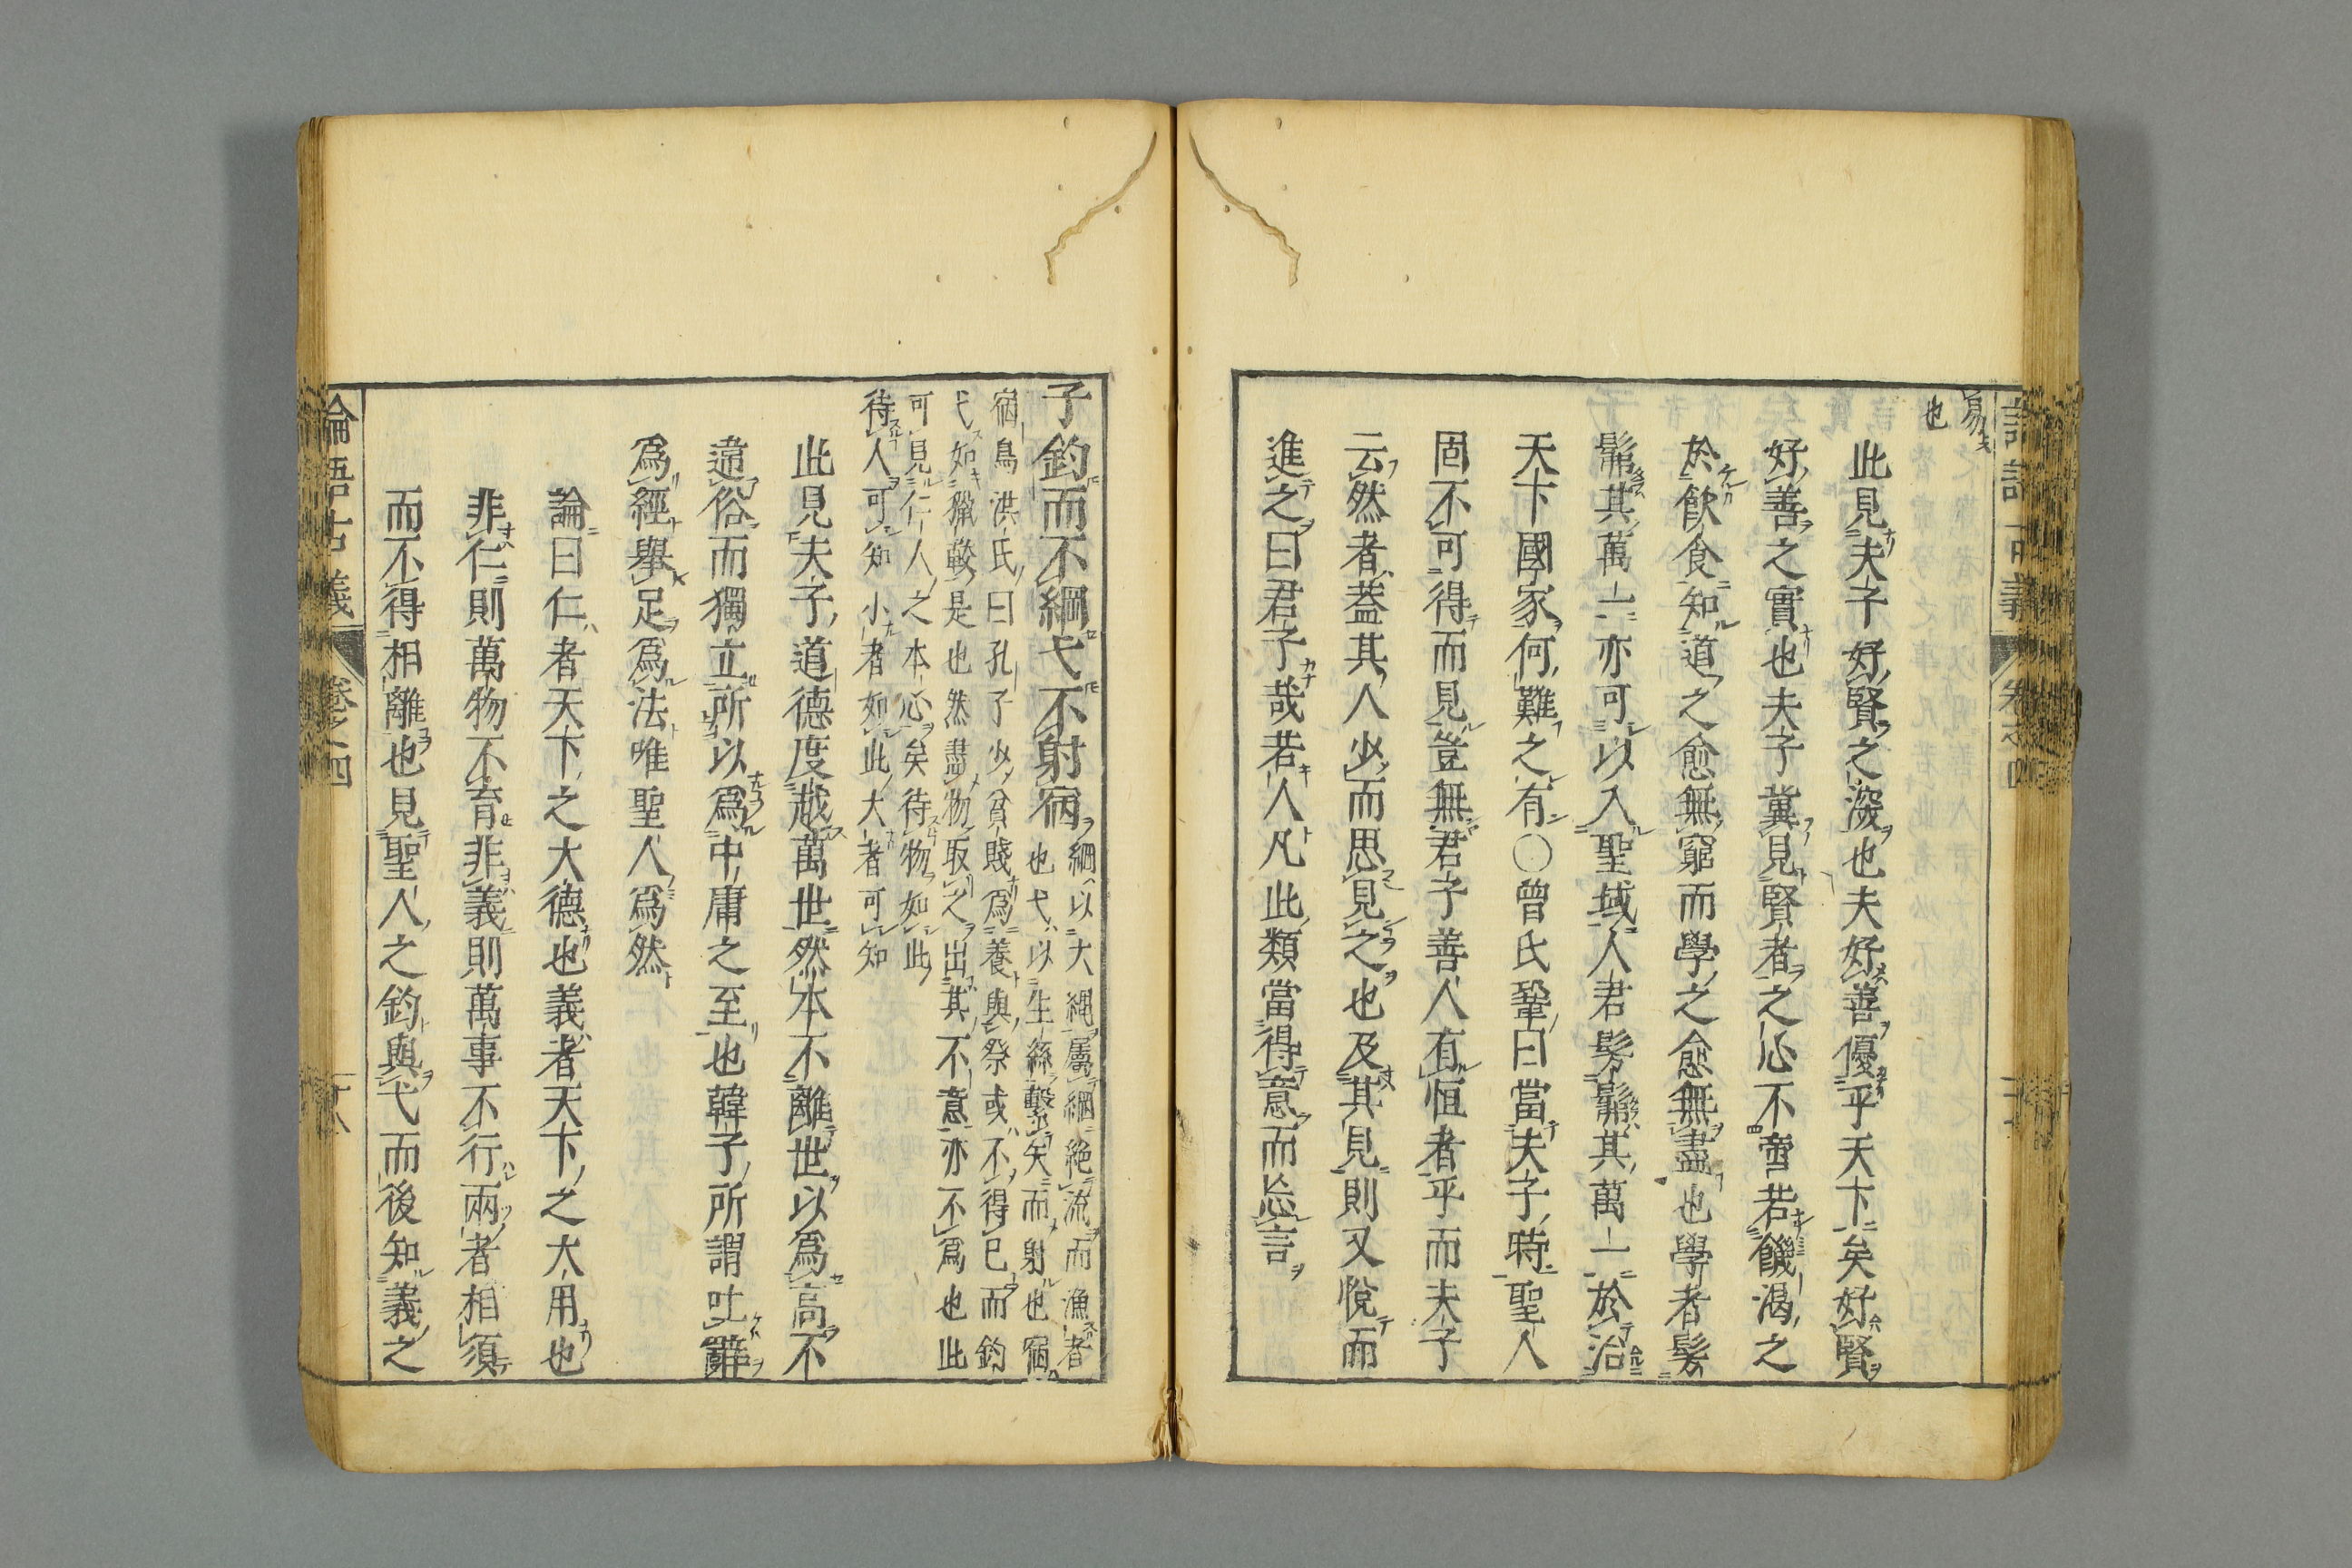 易
也
此見夫子好賢之深也夫好善優乎天下矣好賢
好善之實也夫子冀見賢者之心不啻若饑渴之
於飲食知道之愈無窮而學之愈無盡也學者髣
髴其萬一亦可以入聖域人君髣髴其萬一於治
天下國家何難之有○曾氏鞏曰當夫子時聖人
固不可得而見豈無君子善人有恒者乎而夫子
云然者蓋其人少而思見之也及其見則又悅而
進之曰君子哉若人凡此類當得意而忘言
子釣而不綱弋不射宿綱以大繩屬網絶流而漁者
也弋以生絲繫矢而射也宿
宿鳥洪氏曰孔子少貧賤爲養與祭或不得已而釣
弋如獵較是也然盡物取之出其不意亦不爲也此
可見仁人之本心矣待物如此
待人可知小者如此大者可知
此見夫子道德度越萬世然本不離世以爲高不
違俗而獨立所以爲中庸之至也韓子所謂吐辭
爲經舉足爲法唯聖人爲然
論曰仁者天下之大德也義者天下之大用也
非仁則萬物不育非義則萬事不行兩者相須
而不得相離也見聖人之釣與弋而後知義之
論語古義 卷之四